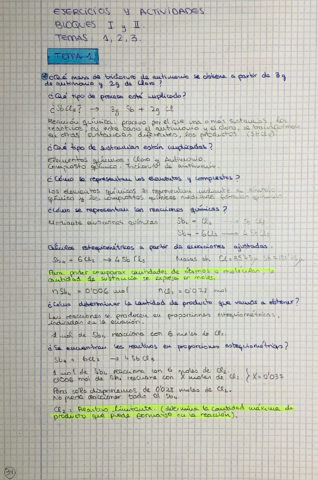 EJERCICIOS Y ACTIVIDADES
BLOQUES I y II
TEMAS 1, 2, 3.
TEMA 1
¿Qué masa de tricloruro de antimonio se obtiene a partir de 3g
de antimonio y 2g de cloro?
¿Qué tipo de proceso está implicado?
¿SbCl3? → 3g Sb + 2g Cl
Reacción química: proceso por el que una o más sustancias, los
reactivos, en este caso el antimonio y el cloro, se transforman
en otras sustancias diferentes, los productos (SbCl3).
¿Qué tipo de sustancias están implicadas?
Elementos químicos: Cloro y Antimonio.
Compuesto químico: Tricloruro de antimonio.
¿Cómo se representan los elementos y compuestos?
Los elementos químicos se representan mediante su símbolo
químico y los compuestos químicos mediante fórmulas químicas.
¿Cómo se representan las reacciones químicas?
Mediante ecuaciones químicas
Sb4 + 6Cl2 → 4SbCl3
Cálculos estequiométricos a partir de ecuaciones ajustadas.
Sb4 + 6Cl2 → 4SbCl3
Para poder comparar cantidades de átomos o moléculas la
cantidad de sustancia se expresa en moles.
n Sb4 = 0'006 mol n Cl2 = 0'027 mol
¿Cómo determinar la cantidad de producto que vamos a obtener?
Las reacciones se producen en proporciones estequiométricas,
indicadas en la ecuación.
1 mol de Sb4 reacciona con 6 moles de Cl2.
¿Se encuentran los reactivos en proporciones estequiométricas?
Sb4 + 6Cl2 → 4SbCl3
1 mol de Sb4 reacciona con 6 moles de Cl2
0'006 mol de Sb4 reacciona con X moles de Cl2 } X = 0'035
Pero sólo disponemos de 0'028 moles de Cl2.
No puede reaccionar todo el Sb4.
Cl2: Reactivo Limitante. (determina la cantidad máxima de
producto que puede formarse en la reacción).